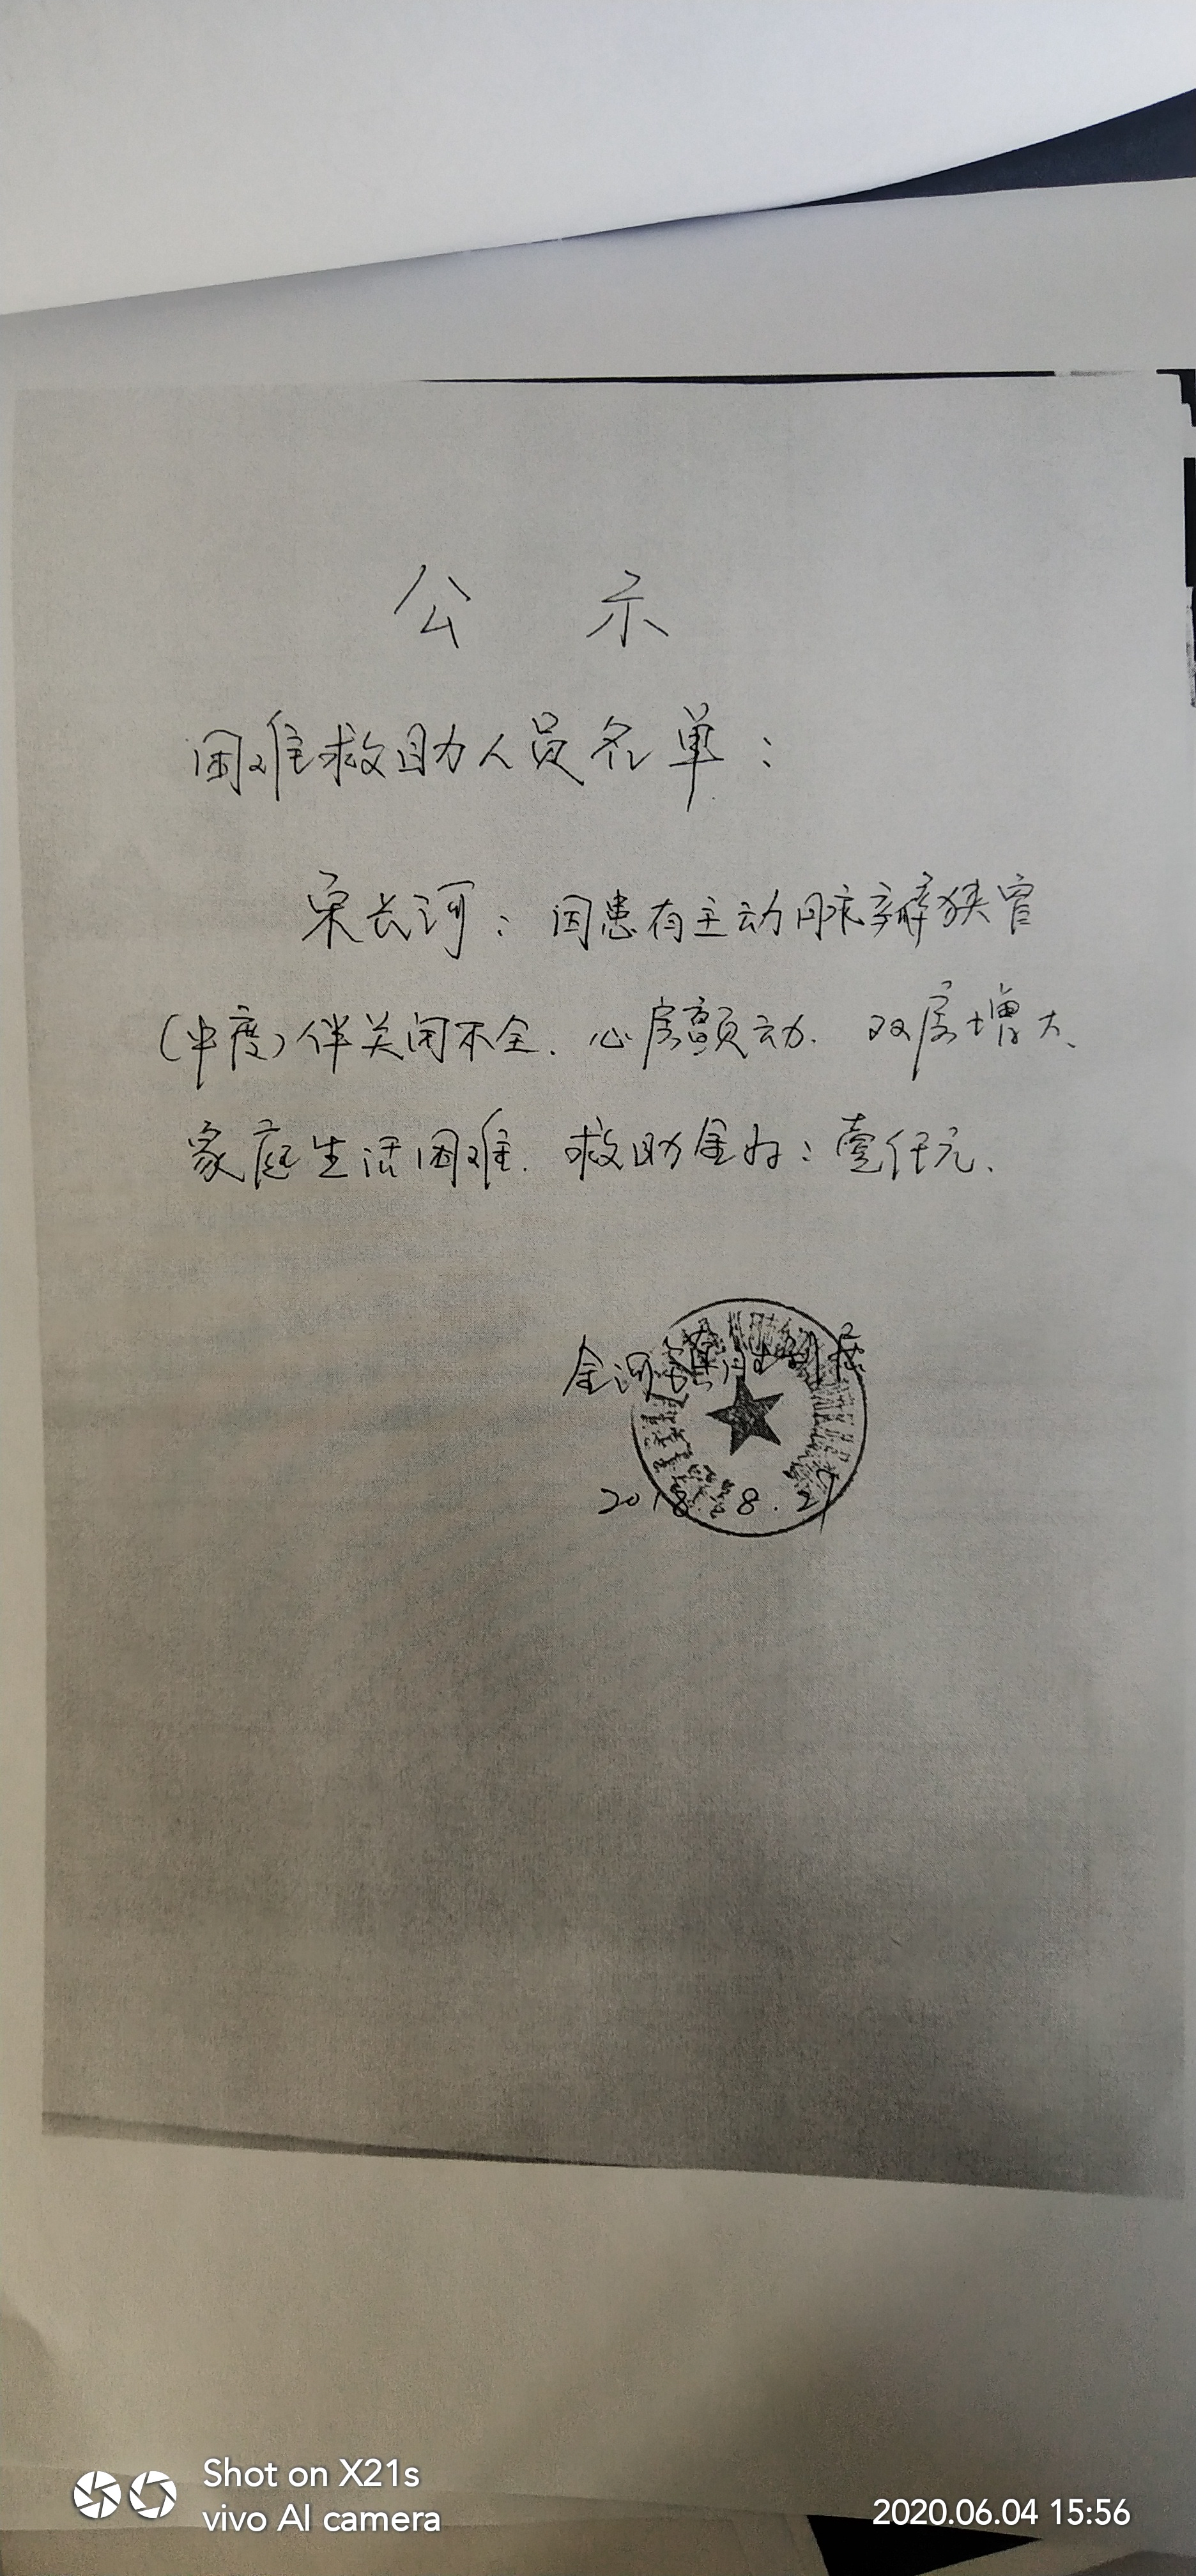 公 示
困难救助人员名单：
宋长河：因患有主动脉瓣狭窄
（中度）伴关闭不全、心房颤动、双房增大、
家庭生活困难、救助金为：壹仟元、
金河
2018.8.21
Shot on X21s
vivo AI camera
2020.06.04 15:56